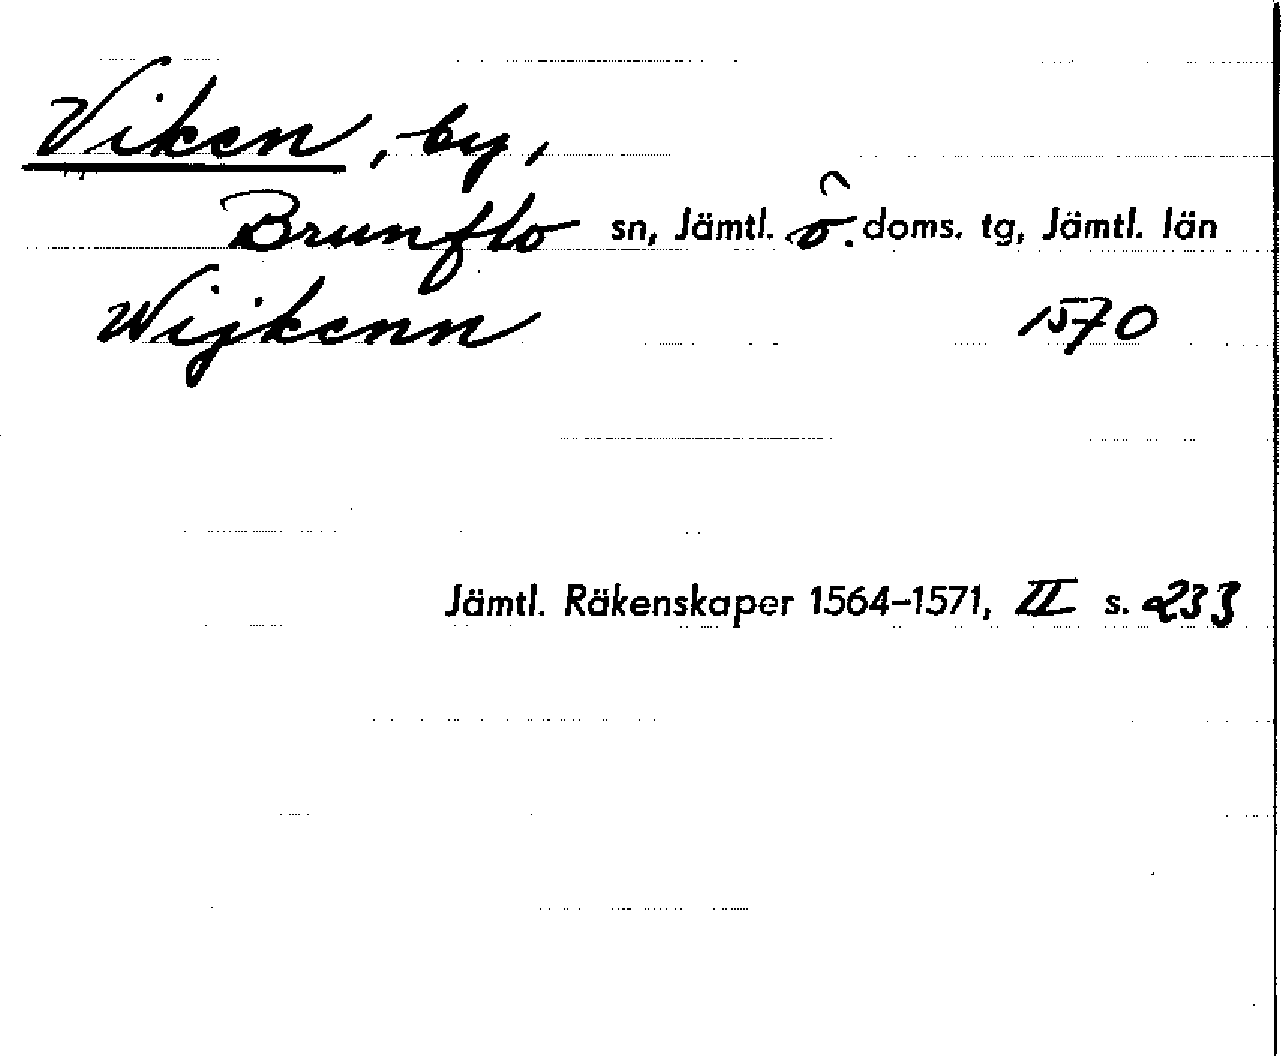 Viken, by,
Brunflo sn, Jämtl. ö. doms. tg, Jämtl. län
Wijkenn 1570
Jämtl. Räkenskaper 1564-1571, II s. 233